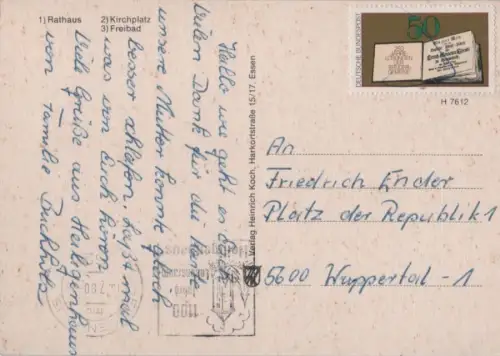 1) Rathaus
2) Kirchplatz
3) Freibad
Hallo wie geht es Euch
Vielen Dank für die Karte
unsere Mutter konnte gleich
besser schlafen. Laßt mal
was von Euch hören
Viele Grüße aus Heiligenhaus
von Familie Buchholz
Verlag Heinrich Koch, Harkortstraße 15/17, Essen
50
DEUTSCHE BUNDESPOST
H 7612
An
Friedrich Ender
Platz der Republik 1
5600 Wuppertal-1
Heiligenhaus